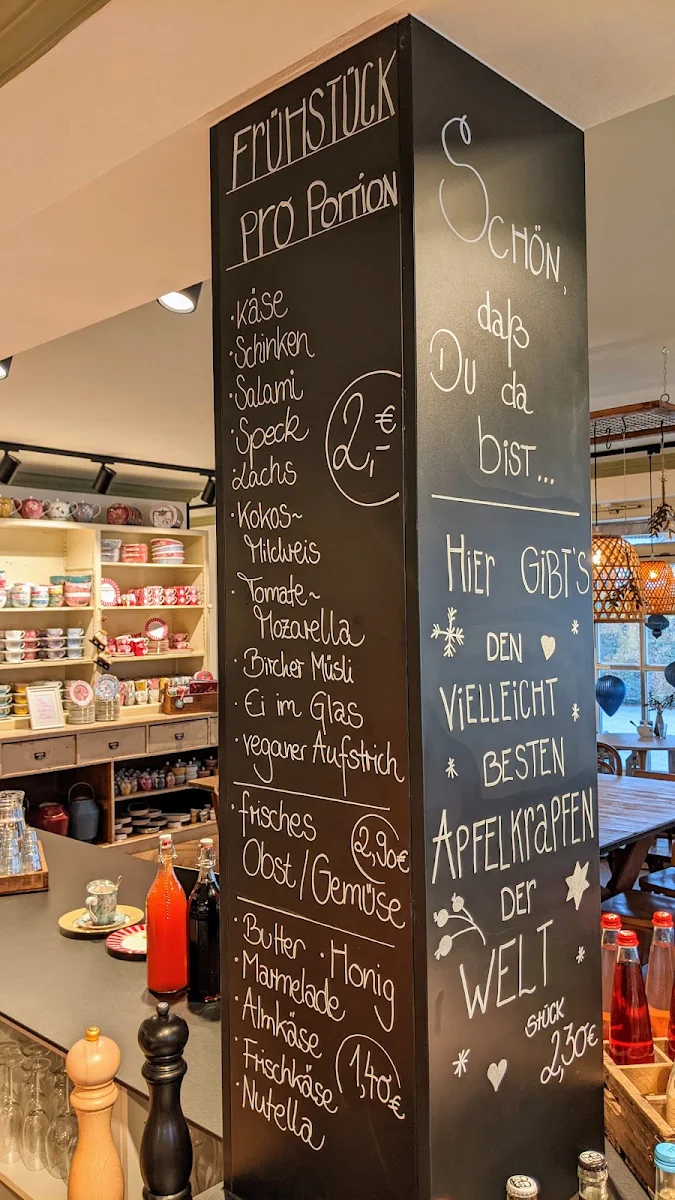 FRÜHSTÜCK
PRO PORTION
·Käse
·Schinken
·Salami
·Speck
·Lachs
2,- €
·Kokos~
Milchreis
·Tomate~
Mozarella
·Bircher Müsli
·Ei im Glas
·veganer Aufstrich
·frisches
Obst/Gemüse
2,90€
·Butter ·Honig
·Marmelade
·Almkäse
·Frischkäse
·Nutella
1,40€
SCHÖN,
daß
Du da
bist...
HIER GIBT'S
DEN
VIELLEICHT
BESTEN
APFELKRAPFEN
DER
WELT
STÜCK
2,30€